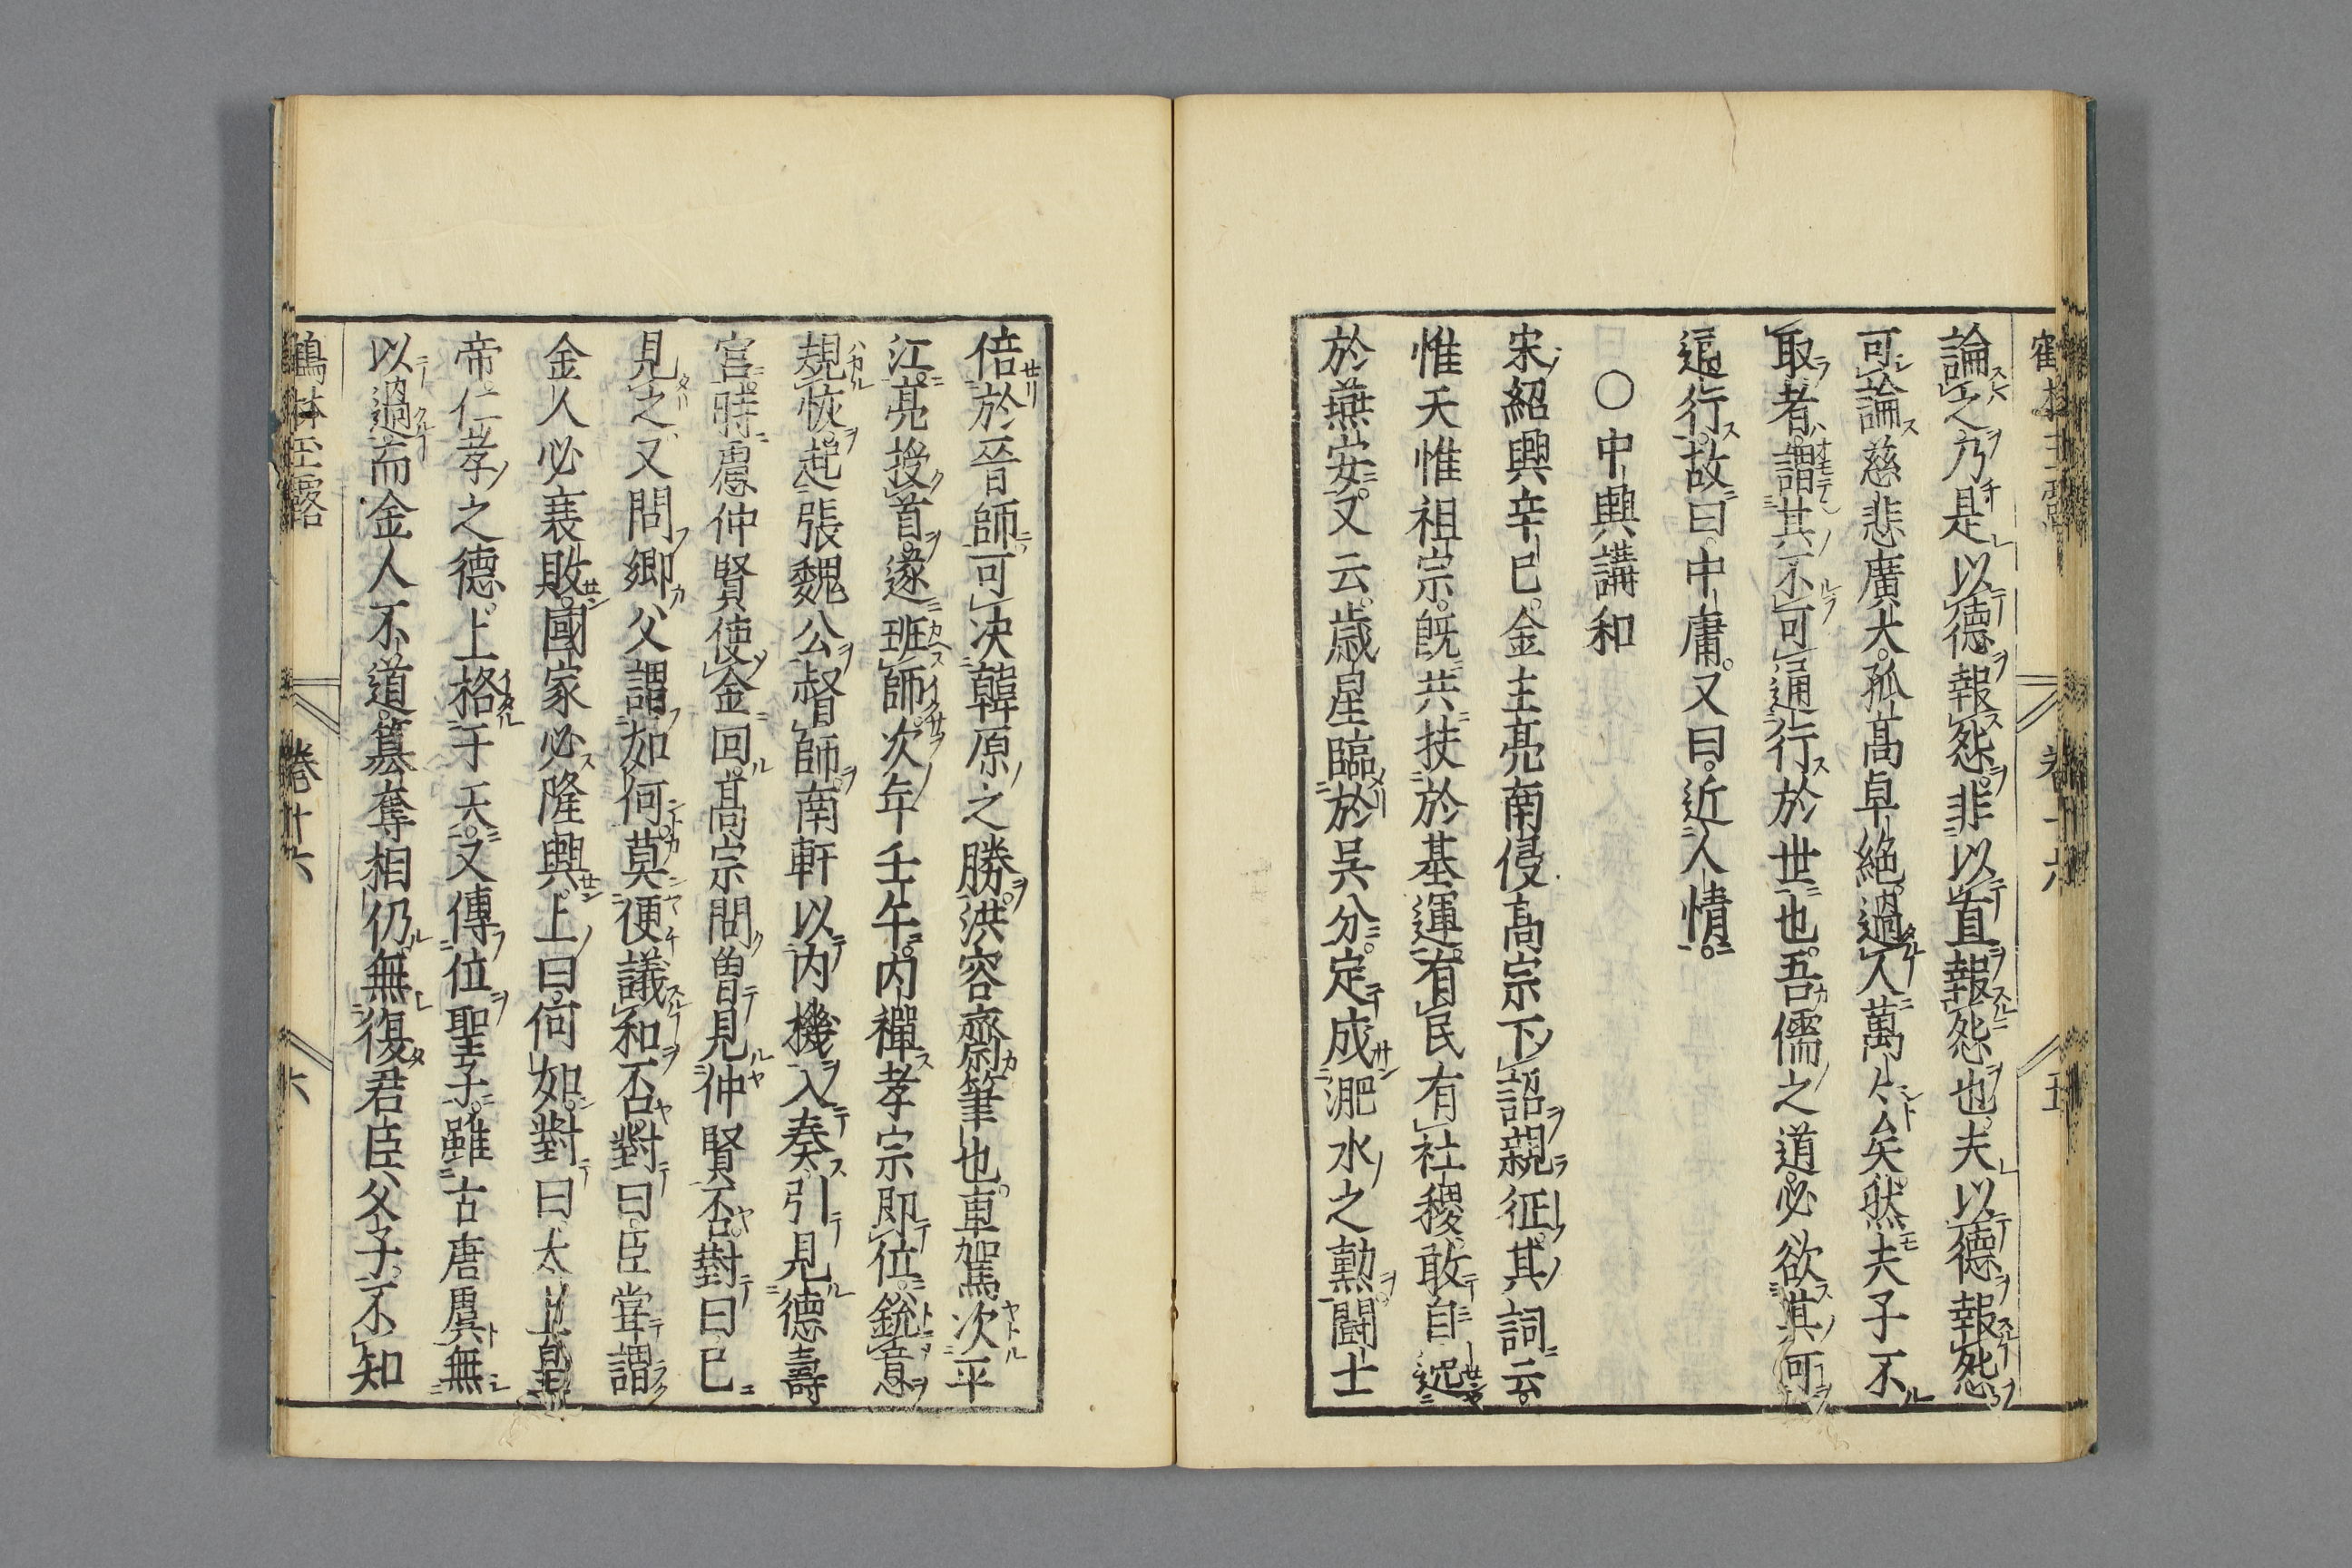 論之乃是以德報怨非以直報怨也夫以德報怨
可論慈悲廣大孤高卓絶過人萬々矣然夫子不
取者謂其不可通行於世也吾儒之道必欲其可
通行故曰中庸又曰近人情
○中興講和
宋紹興辛巳金主亮南侵高宗下詔親征其詞云
惟天惟祖宗既共扶於基運有民有社稷敢自逸
於燕安又云歲星臨於吳分定成淝水之勳鬪士
倍於晉師可決韓原之勝洪容齋筆也車駕次平
江亮授首遂班師次年壬午内禪孝宗即位銳意
規恢起張魏公督師南軒以内機入奏引見德壽
宮時盧仲賢使金回高宗問曽見仲賢否對曰已
見之又問卿父謂如何莫便議和否對曰臣嘗謂
金人必衰敗國家必隆興上曰何如對曰太上皇
帝仁孝之德上格于天又傳位聖子雖古唐虞無
以過而金人不道簒奪相仍無復君臣父子不知
鶴林玉露 卷十六 六